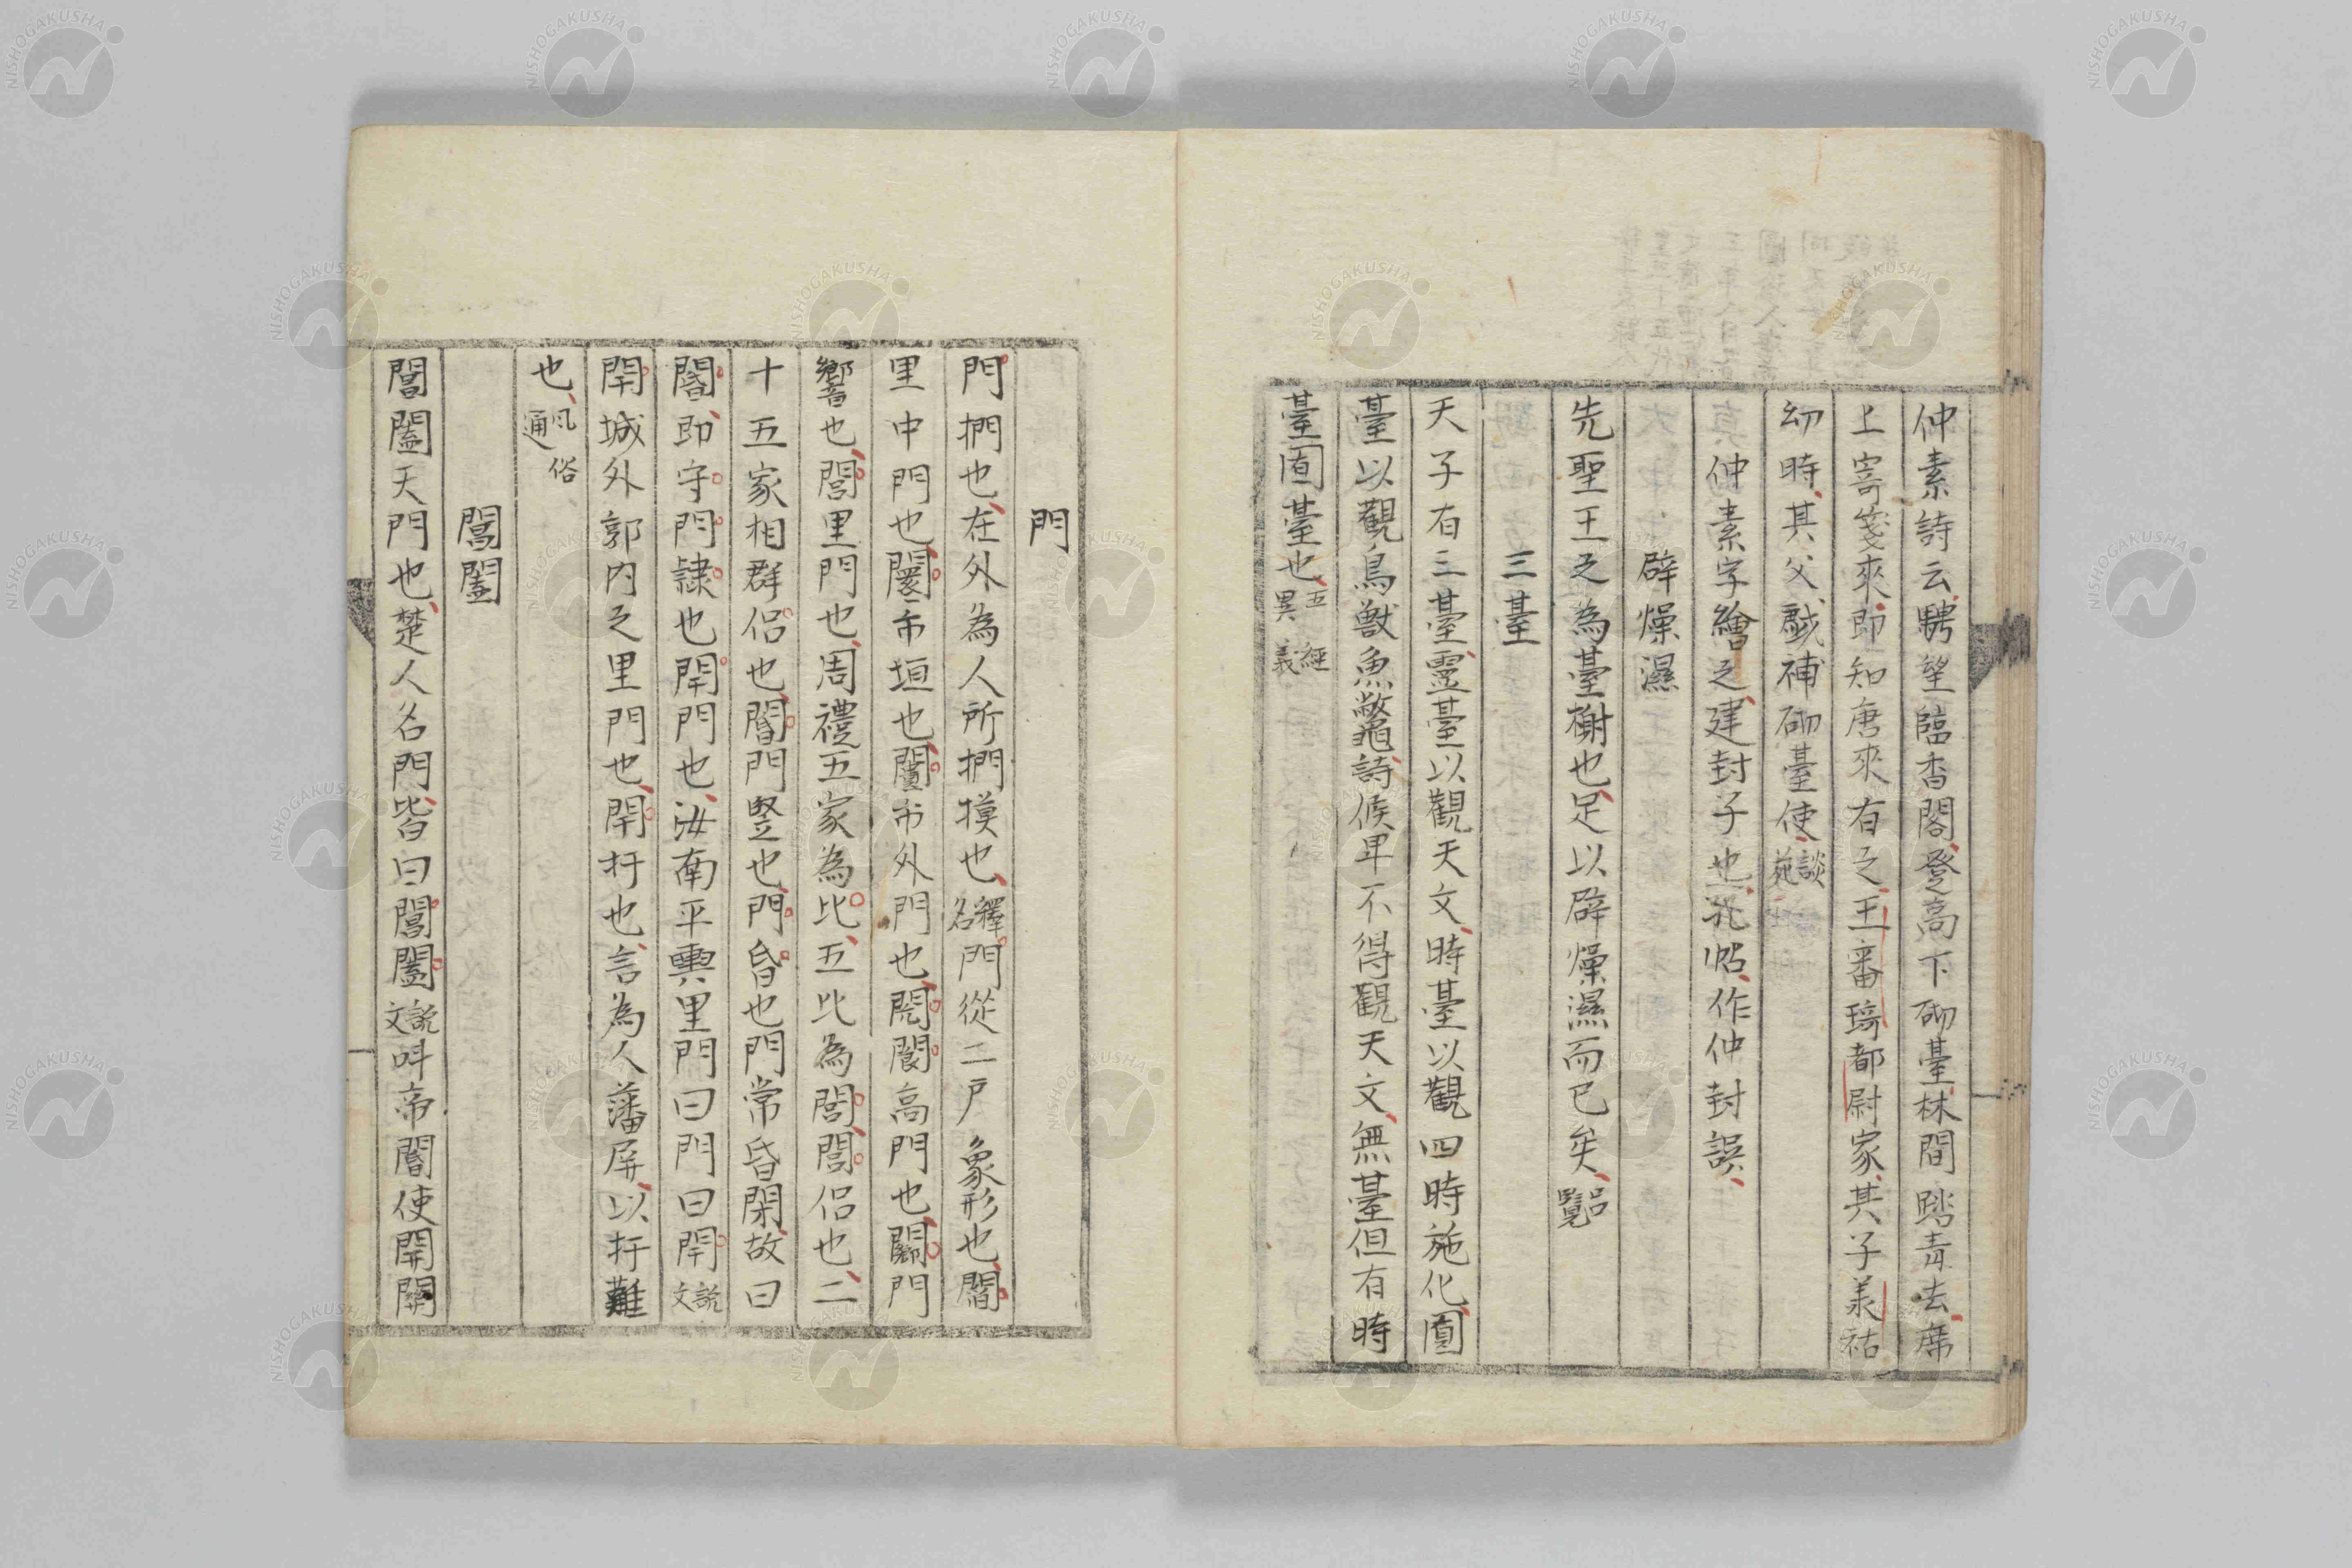 仲素詩云騁望臨香閣登高下砌臺林間踏青去席
上寄箋來即知唐來有之王審琦都尉家其子義祐
幼時其父戱補砌臺使談苑
仲素字繪之建封子也孔帖作仲封誤
辟燥濕
先聖王之為臺榭也足以辟燥濕而已矣呂覽
三臺
天子有三臺靈臺以觀天文時臺以觀四時施化囿
臺以觀鳥獸魚鼈諸候卑不得觀天文無臺但有時
臺囿臺也五經異義
門
門捫也在外為人所捫摸也釋名門從二戶象形也閻
里中門也闤市垣也闠市外門也閌閬高門也闢門
響也閭里門也周禮五家為比五比為閭閭侶也二
十五家相群侶也閽門竪也門昏也門常昏閉故曰
閽即守門隷也閈門也汝南平輿里門曰門曰閈說文
閈城外郭内之里門也閈扞也言為人藩屏以扞難
也風俗通
閶闔
閶闔天門也楚人名門皆曰閶闔說文叫帝閽使開關
NISHOGAKUSHA